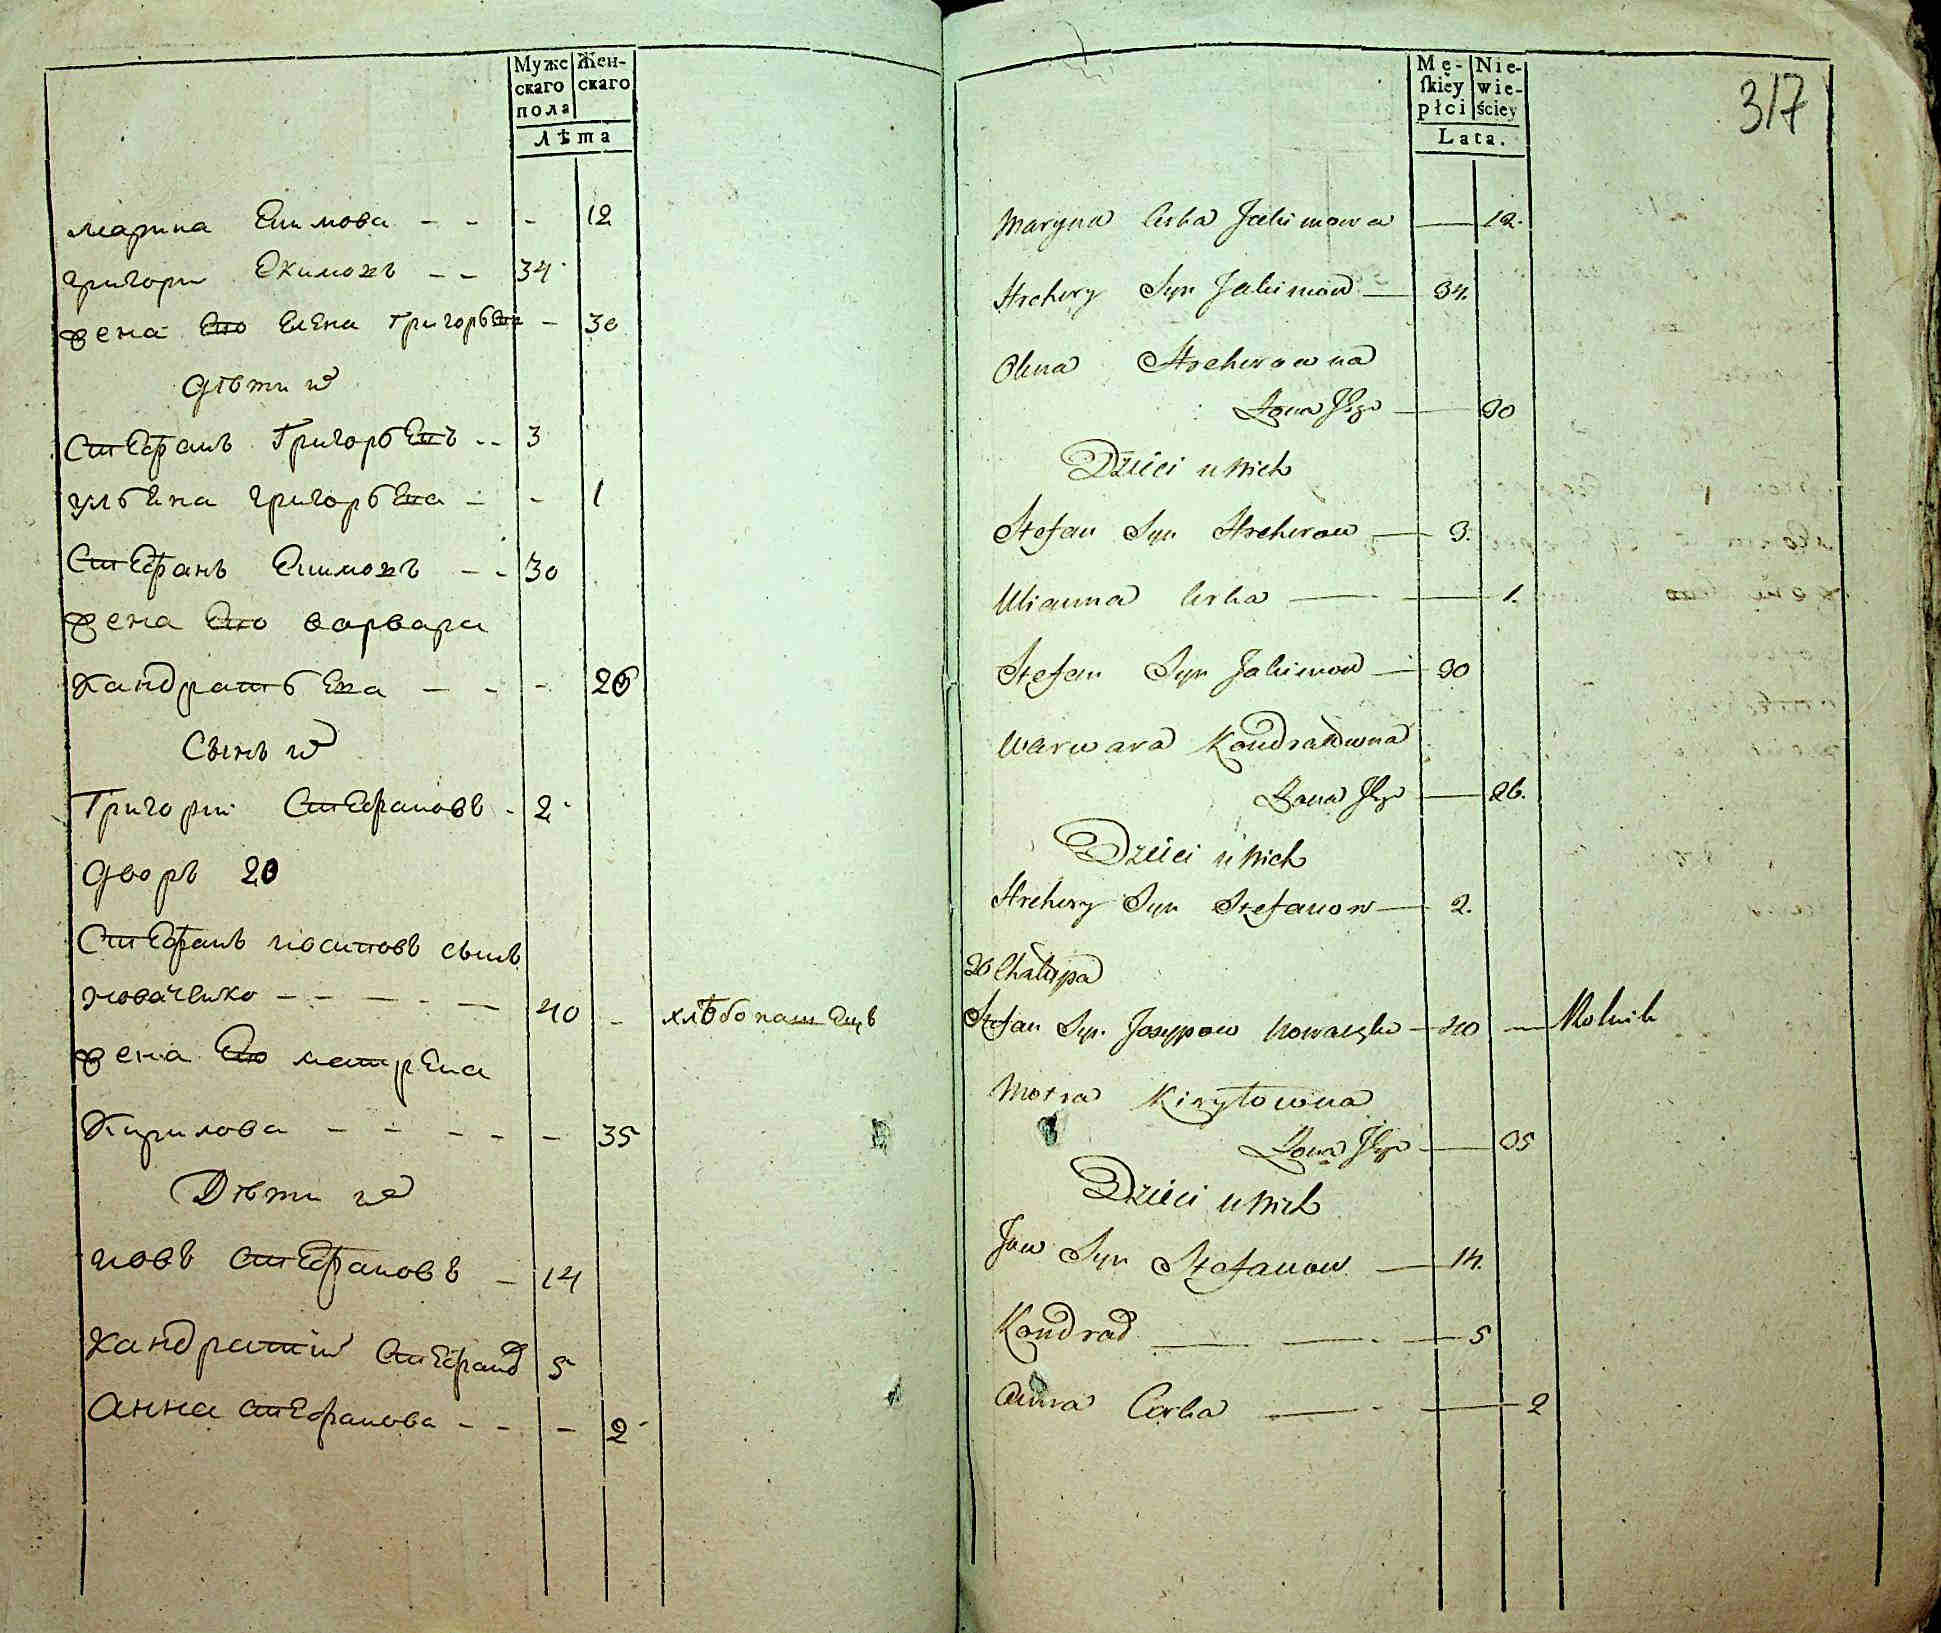 Муже
скаго
пола
Жен-
скаго
лѣта
марина Екимова - - - 12
григори Екимовъ - - 34
жена Его Елена григорьева - 30
дѣти их
Стефанъ Григорьевъ - - 3
ульяна григорьева - - 1
Стефанъ Екимовъ - - 30
жена Его варвара
Кандратьева - - - 26
Сынъ их
Григорий Стефановъ - 2
дворъ 20
Стефанъ иосиповъ сынъ
новаченко - - - - 40 - хлѣбопашецъ
жена Его матрена
Кирилова - - - - - 35
Дѣти их
иовъ стефановъ - 14
Кандратий Стефанов 5
Анна стефанова - - - 2
Mę-
skiey
płci
Nie-
wie-
ściey
Lata.
317
Maryna Corka Jakimowa — 12.
Hrehory Syn Jakimow — 34.
Olena Hrehorowna
Żona Jego — 30
Dzieci u Nich
Stefan Syn Hrehorow — 3.
Ulianna Corka — 1.
Stefan Syn Jakimow — 30
Warwara Kondratowna
Żona Jego — 26.
Dzieci u Nich
Hrehory Syn Stefanow — 2.
20 Chałupa
Stefan Syn Jozypow Nowaczko — 40 — Rolnik
Motra Kiryłowna
Żona Jego — 35
Dzieci u Nich
Jow Syn Stefanow — 14.
Kondrad — 5
Anna Corka — 2